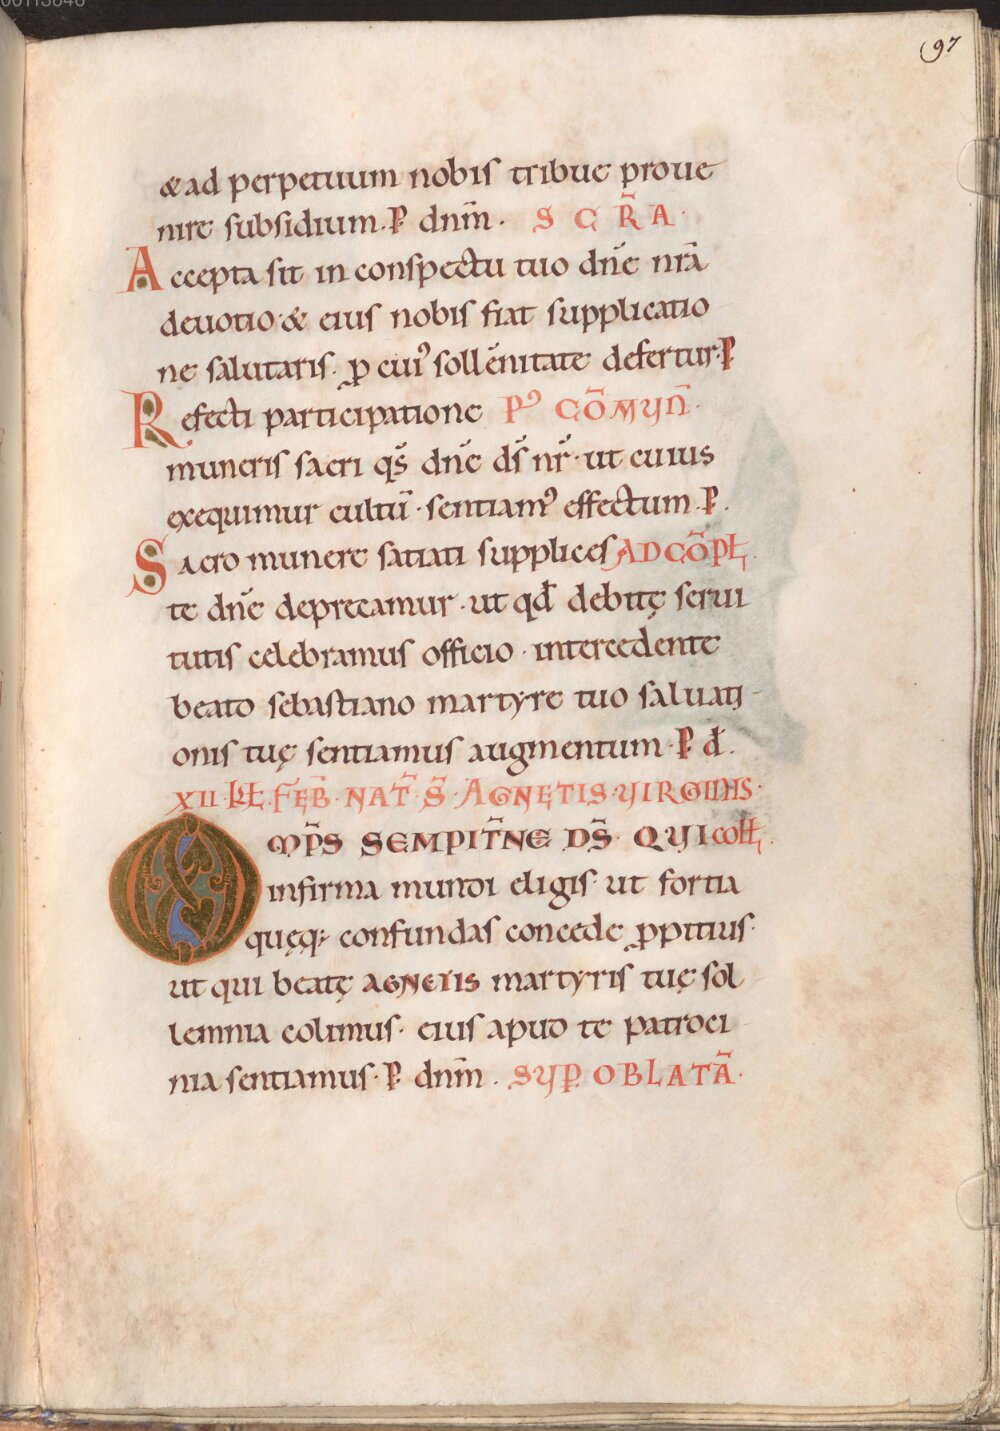 97
& ad perpetuum nobis tribue proue
nire subsidium. P dnm̄. S C R̄ A.
Accepta sit in conspectu tuo dne nrā
deuotio· & eius nobis fiat supplicatio
ne salutaris. ꝓ cui᾽ sollēnitate defertur. P
Refecti participatione P᾽ CŌMUN̄.
muneris sacri qs̄ dne ds̄ nr̄· ut cuius
exequimur cultū· sentiam᾽ effectum. P.
Sacro munere satiati supplices AD CŌPL̄.
te dne deprecamur· ut qđ debitę serui
tutis celebramus officio· intercedente
beato sebastiano martyre tuo saluati-
onis tuę sentiamus augmentum. P d̄.
XII. KL̄. FEB̄. NAT̄. S̄. AGNETIS. UIRGINIS.
OMP̄S SEMPIT̄NE DS̄. QUI COLL̄.
infirma mundi eligis· ut fortia
quęq; confundas concede ꝓpitius·
ut qui beatę AGNETIS martyris tuę sol
lemnia colimus· eius apud te patroci
nia sentiamus. P. dnm̄. SUP. OBLATĀ.